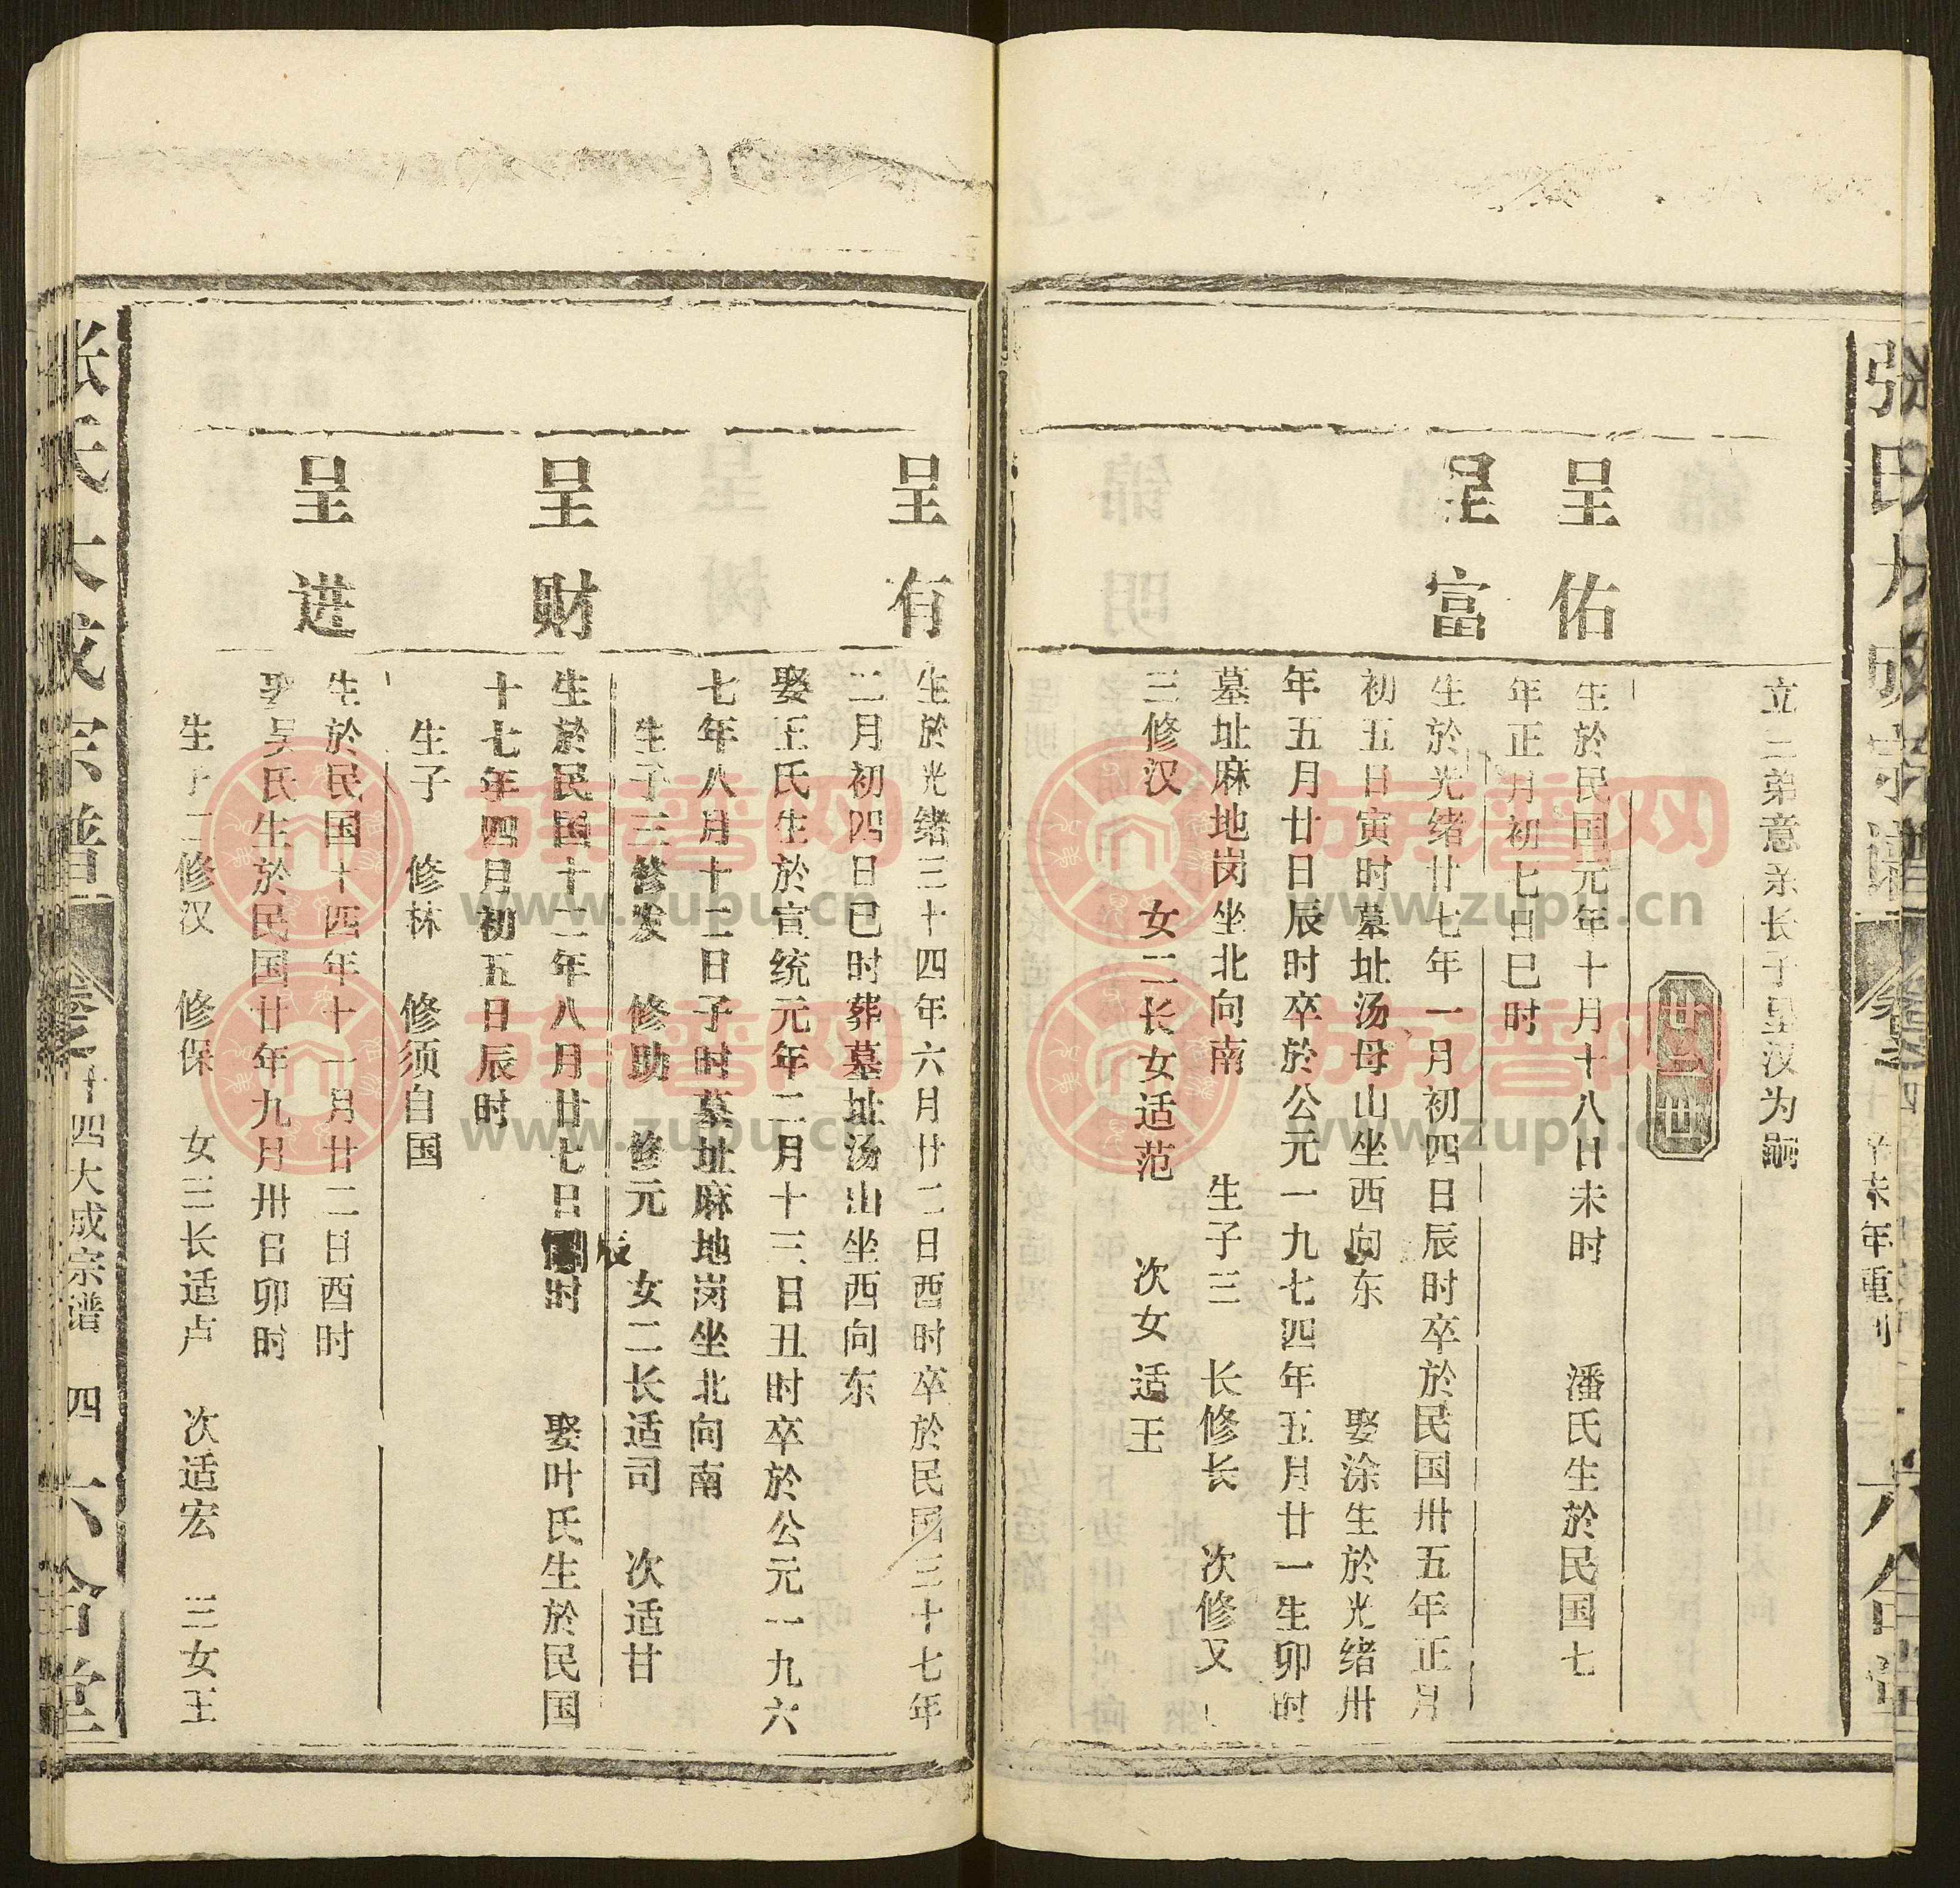 张氏大成宗谱
辛未年重刊
六合堂
立二弟意亲长子呈汉为嗣
廿二世
呈佑
生於民国元年十月十八日未时 潘氏生於民国七
年正月初七日巳时
呈富
生於光绪廿七年一月初四日辰时卒於民国卅五年正月
初五日寅时墓址汤母山坐西向东 娶涂生於光绪卅
年五月廿日辰时卒於公元一九七四年五月廿一生卯时
墓址麻地岗坐北向南 生子三 长修长 次修又
三修汉 女二长女适范 次女适王
呈有
生於光绪三十四年六月廿二日酉时卒於民国三十七年
二月初四日巳时葬墓址汤山坐西向东
娶王氏生於宣统元年二月十三日丑时卒於公元一九六
七年八月十二日子时墓址麻地岗坐北向南
生子三修发 修助 修元 女二长适司 次适甘
呈财
生於民国十二年八月廿七日辰时 娶叶氏生於民国
十七年四月初五日辰时
生子 修林 修须自国
呈进
生於民国十四年十一月廿二日酉时
娶吴氏生於民国廿年九月卅日卯时
生子二修汉 修保 女三长适卢 次适宏 三女王
张氏大成宗谱
卷之十四大成宗谱 四
六合堂
族谱网
www.zupu.cn
族谱网
www.zupu.cn
族谱网
www.zupu.cn
族谱网
www.zupu.cn